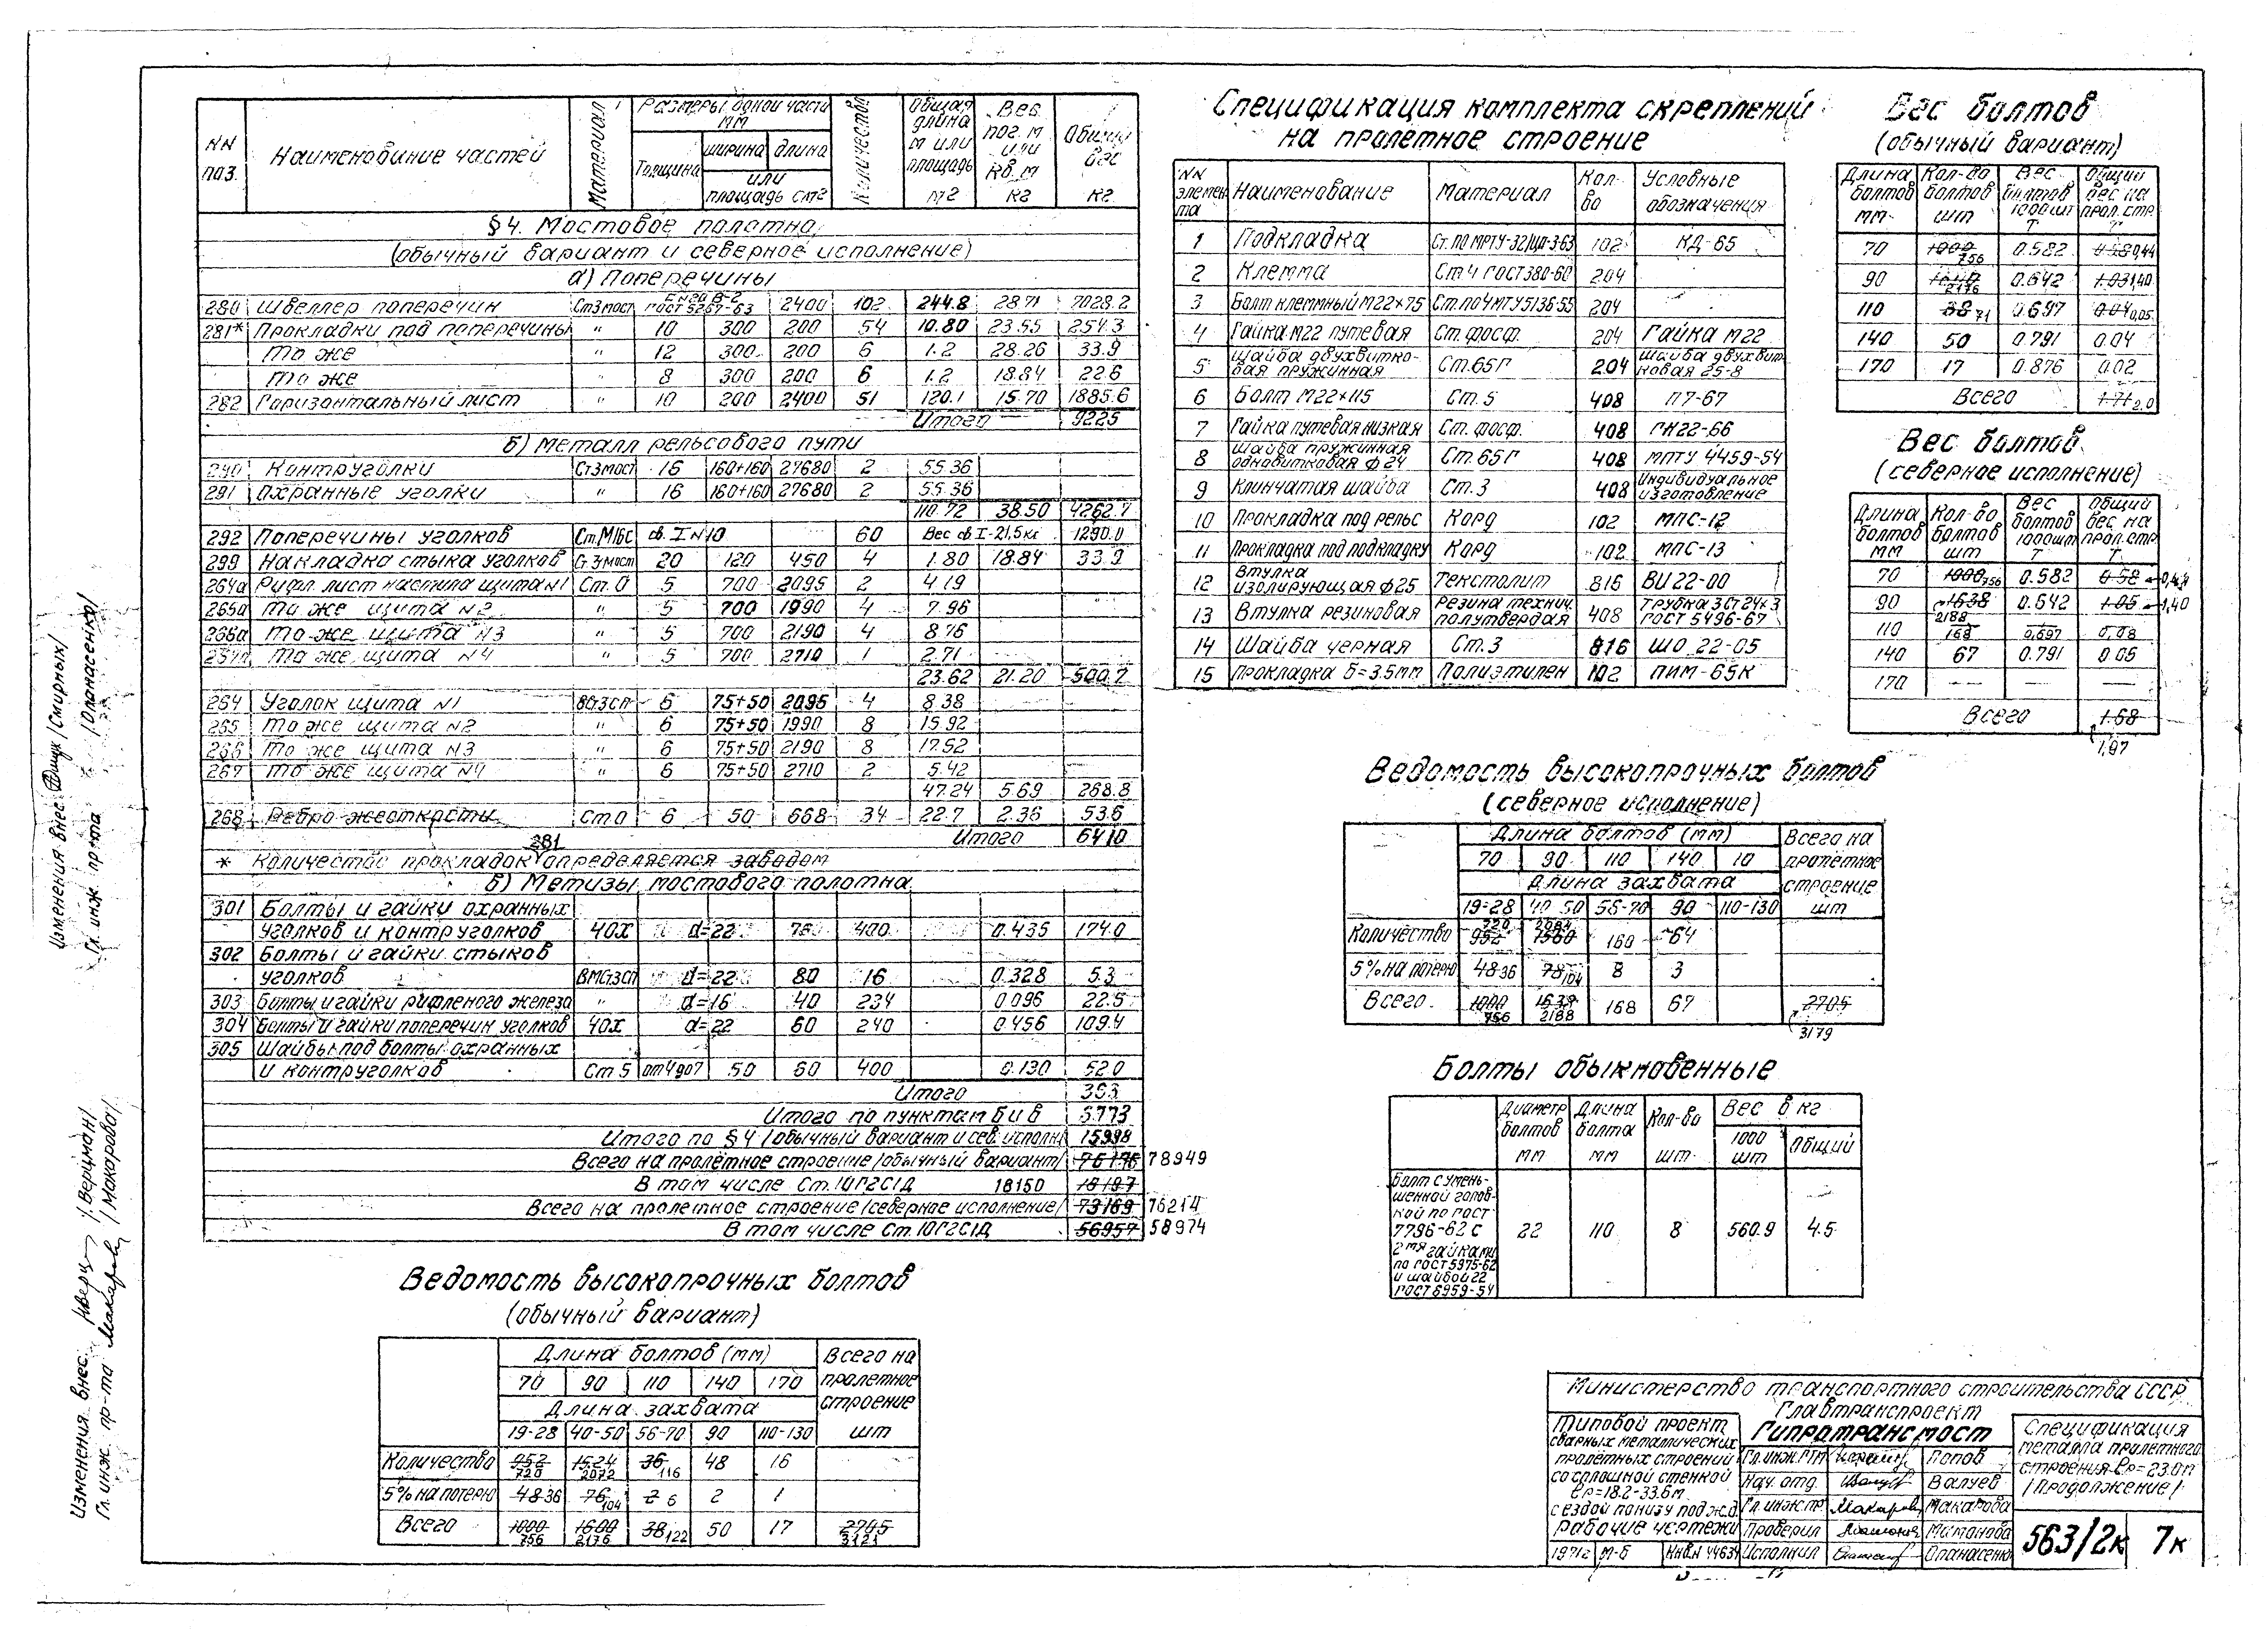 NN поз.	Наименование частей	Материал	Размеры одной части мм	Количество	Общая длина м или площадь м2	Вес пог. м или кв. м кг	Общий вес кг
Толщина	ширина	длина
или площадь см2
§4. Мостовое полотно
(обычный вариант и северное исполнение)
а) Поперечины
280	Швеллер поперечин	Ст3мост	ГОСТ 5267-63	2400	102	244.8	28.71	7028.2
281*	Прокладки под поперечины	"	10	300	200	54	10.80	23.55	254.3
То же	"	12	300	200	6	1.2	28.26	33.9
То же	"	8	300	200	6	1.2	18.84	22.6
282	Горизонтальный лист	"	10	200	2400	51	120.1	15.70	1885.6
Итого	9225
б) Металл рельсового пути
290	Контруголки	Ст3мост	16	160+160	27680	2	55.36
291	Охранные уголки	"	16	160+160	27680	2	55.36
110.72	38.50	4262.7
292	Поперечины уголков	Ст.М16С	дв. I N10	60	Вес дв I-21,5кг	1290.0
299	Накладка стыка уголков	Ст.3мост	20	120	450	4	1.80	18.84	33.9
264а	Рифл. лист настила щита N1	Ст.0	5	700	2095	2	4.19
265а	То же щита N2	"	5	700	1990	4	7.96
266а	То же щита N3	"	5	700	2190	4	8.76
То же щита N4	"	5	700	2710	1	2.71
23.62	21.20	500.7
264	Уголок щита N1	ВСт3сп	6	75+50	2095	4	8.38
265	То же щита N2	"	6	75+50	1990	8	15.92
266	То же щита N3	"	6	75+50	2190	8	17.52
267	То же щита N4	"	6	75+50	2710	2	5.42
47.24	5.69	268.8
268	Ребро жесткости	Ст0	6	50	668	34	22.7	2.36	53.6
Итого	6410
281
* Количество прокладок определяется заводом
в) Метизы мостового полотна
301	Болты и гайки охранных
уголков и контруголков	40Х	d=22	400	0.435	174.0
302	Болты и гайки стыков
уголков	ВМСт3сп	d=22	80	16	0.328	5.3
303	Болты и гайки рифленого железа	"	d=16	40	234	0.096	22.5
304	Болты и гайки поперечин уголков	40Х	d=22	60	240	0.456	109.4
305	Шайбы под болты охранных
и контруголков	Ст.5	от4до7	50	60	400	0.130	52.0
Итого	363
Итого по пунктам б и в
Итого по §4 /обычный вариант и сев. исполн/	15998
Всего на пролётное строение /обычный вариант/	76176	78949
В том числе Ст.10Г2С1Д	18150
Всего на пролетное строение /северное исполнение/	73169	76214
В том числе Ст.10Г2С1Д	56957	58974
Ведомость высокопрочных болтов
(обычный вариант)
Длина болтов (мм)	Всего на пролетное строение шт
70	90	110	140	170
Длина захвата
19-28	40-50	56-70	90	110-130
Количество	952 720	1524 2072	36 116	48	16
5% на потерю	48 36	76 104	2 6	2	1
Всего	1000 756	1600 2176	38 122	50	17	2705 3121
Спецификация комплекта скреплений
на пролётное строение
NN элемента	Наименование	Материал	Кол-во	Условные обозначения
1	Подкладка	Ст. по МРТУ-32/ЦП-3-63	102	КД-65
2	Клемма	Ст.4 ГОСТ380-60	204
3	Болт клеммный М22×75	Ст. по ЧМТУ5136-55	204
4	Гайка М22 путевая	Ст. фосф.	204	Гайка М22
5	Шайба двухвитковая пружинная	Ст.65Г	204	Шайба двухвитковая 25-8
6	Болт М22×115	Ст.5	408	П7-67
7	Гайка путевая низкая	Ст. фосф.	408	ГН22-66
8	Шайба пружинная одновитковая ф24	Ст.65Г	408	МПТУ 4459-54
9	Клинчатая шайба	Ст.3	408	Индивидуальное изготовление
10	Прокладка под рельс	Корд	102	МПС-12
11	Прокладка под подкладку	Корд	102	МПС-13
12	Втулка изолирующая ф25	Текстолит	816	ВИ22-00
13	Втулка резиновая	Резина технич. полутвердая	408	Трубка 3Ст24×3 ГОСТ 5496-67
14	Шайба черная	Ст.3	816	ШО 22-05
15	Прокладка б=3.5мм	Полиэтилен	102	ПИМ-65К
Вес болтов
(обычный вариант)
Длина болтов мм	Кол-во болтов шт	Вес болтов 1000шт Т	Общий вес на прол. стр. Т
70	1000 756	0.582	0.58 0,44
90	2176	0.642	1.03 1,40
110	38 71	0.697	0.04 0,05
140	50	0.791	0.04
170	17	0.876	0.02
Всего	1.71 2.0
Вес болтов
(северное исполнение)
Длина болтов мм	Кол-во болтов шт	Вес болтов 1000шт Т	Общий вес на прол. стр Т
70	1000 756	0.582	0.58 0,44
90	1638 2188	0.642	1.05 1,40
110	168	0,697	0,08
140	67	0.791	0.05
170	—	—	—
Всего	1.68
1,97
Ведомость высокопрочных болтов
(северное исполнение)
Длина болтов (мм)	Всего на пролётное строение шт
70	90	110	140	10
Длина захвата
19-28	40-50	56-70	90	110-130
Количество	952 720	1560 2084	160	64
5% на потерю	48 36	78 104	8	3
Всего	1000 756	1638 2188	168	67	2705
3179
Болты обыкновенные
Диаметр болтов мм	Длина болта мм	Кол-во шт.	Вес в кг
1000 шт	Общий
Болт с умень-
шенной голов-
кой по ГОСТ
7796-62 с	22	110	8	560.9	4.5
2мя гайками
по ГОСТ5975-62
и шайбой 22
ГОСТ6959-54
Министерство транспортного строительства СССР
Главтранспроект
Гипротрансмост
Типовой проект
сварных металлических
пролётных строений
со сплошной стенкой
ℓр=18.2-33.6м
с ездой понизу под ж.д.
Рабочие чертежи
Гл. инж. ГТМ	Попов
Нач. отд.	Валуев
Гл. инж. пр	Макарова
Проверил	Маманова
1971г	М-б	Инв.N 44634	Исполнил	Опанасенко
Спецификация
металла пролетного
строения ℓр=23.0м
/Продолжение/
563/2к	7к
Изменения внес /Смирных/
Гл. инж. пр-та /Опанасенко/
Изменения внес. /. Верцман/
Гл. инж. пр-та Макарова /Макарова/